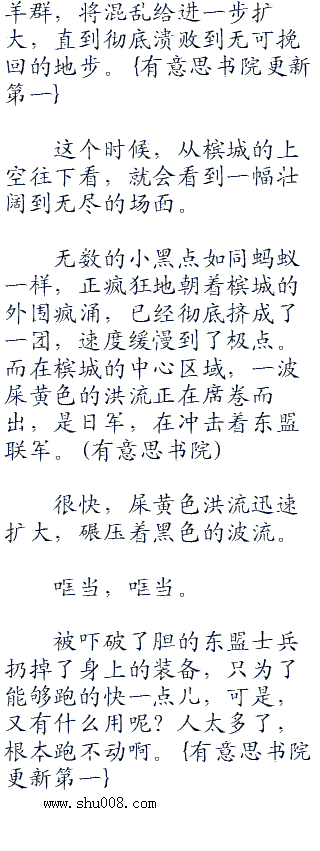 羊群，将混乱给进一步扩
大，直到彻底溃败到无可挽
回的地步。{有意思书院更新
第一}
这个时候，从槟城的上
空往下看，就会看到一幅壮
阔到无尽的场面。
无数的小黑点如同蚂蚁
一样，正疯狂地朝着槟城的
外围疯涌，已经彻底挤成了
一团，速度缓慢到了极点。
而在槟城的中心区域，一波
屎黄色的洪流正在席卷而
出，是日军，在冲击着东盟
联军。(有意思书院)
很快，屎黄色洪流迅速
扩大，碾压着黑色的波流。
哐当，哐当。
被吓破了胆的东盟士兵
扔掉了身上的装备，只为了
能够跑的快一点儿，可是，
又有什么用呢？人太多了，
根本跑不动啊。{有意思书院
更新第一}
www.shu008.com